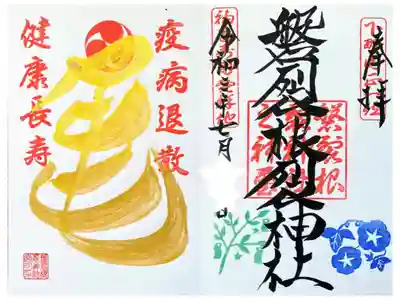 奉拝
磐裂根裂神社
令和三年七月 日
疫病退散
健康長寿